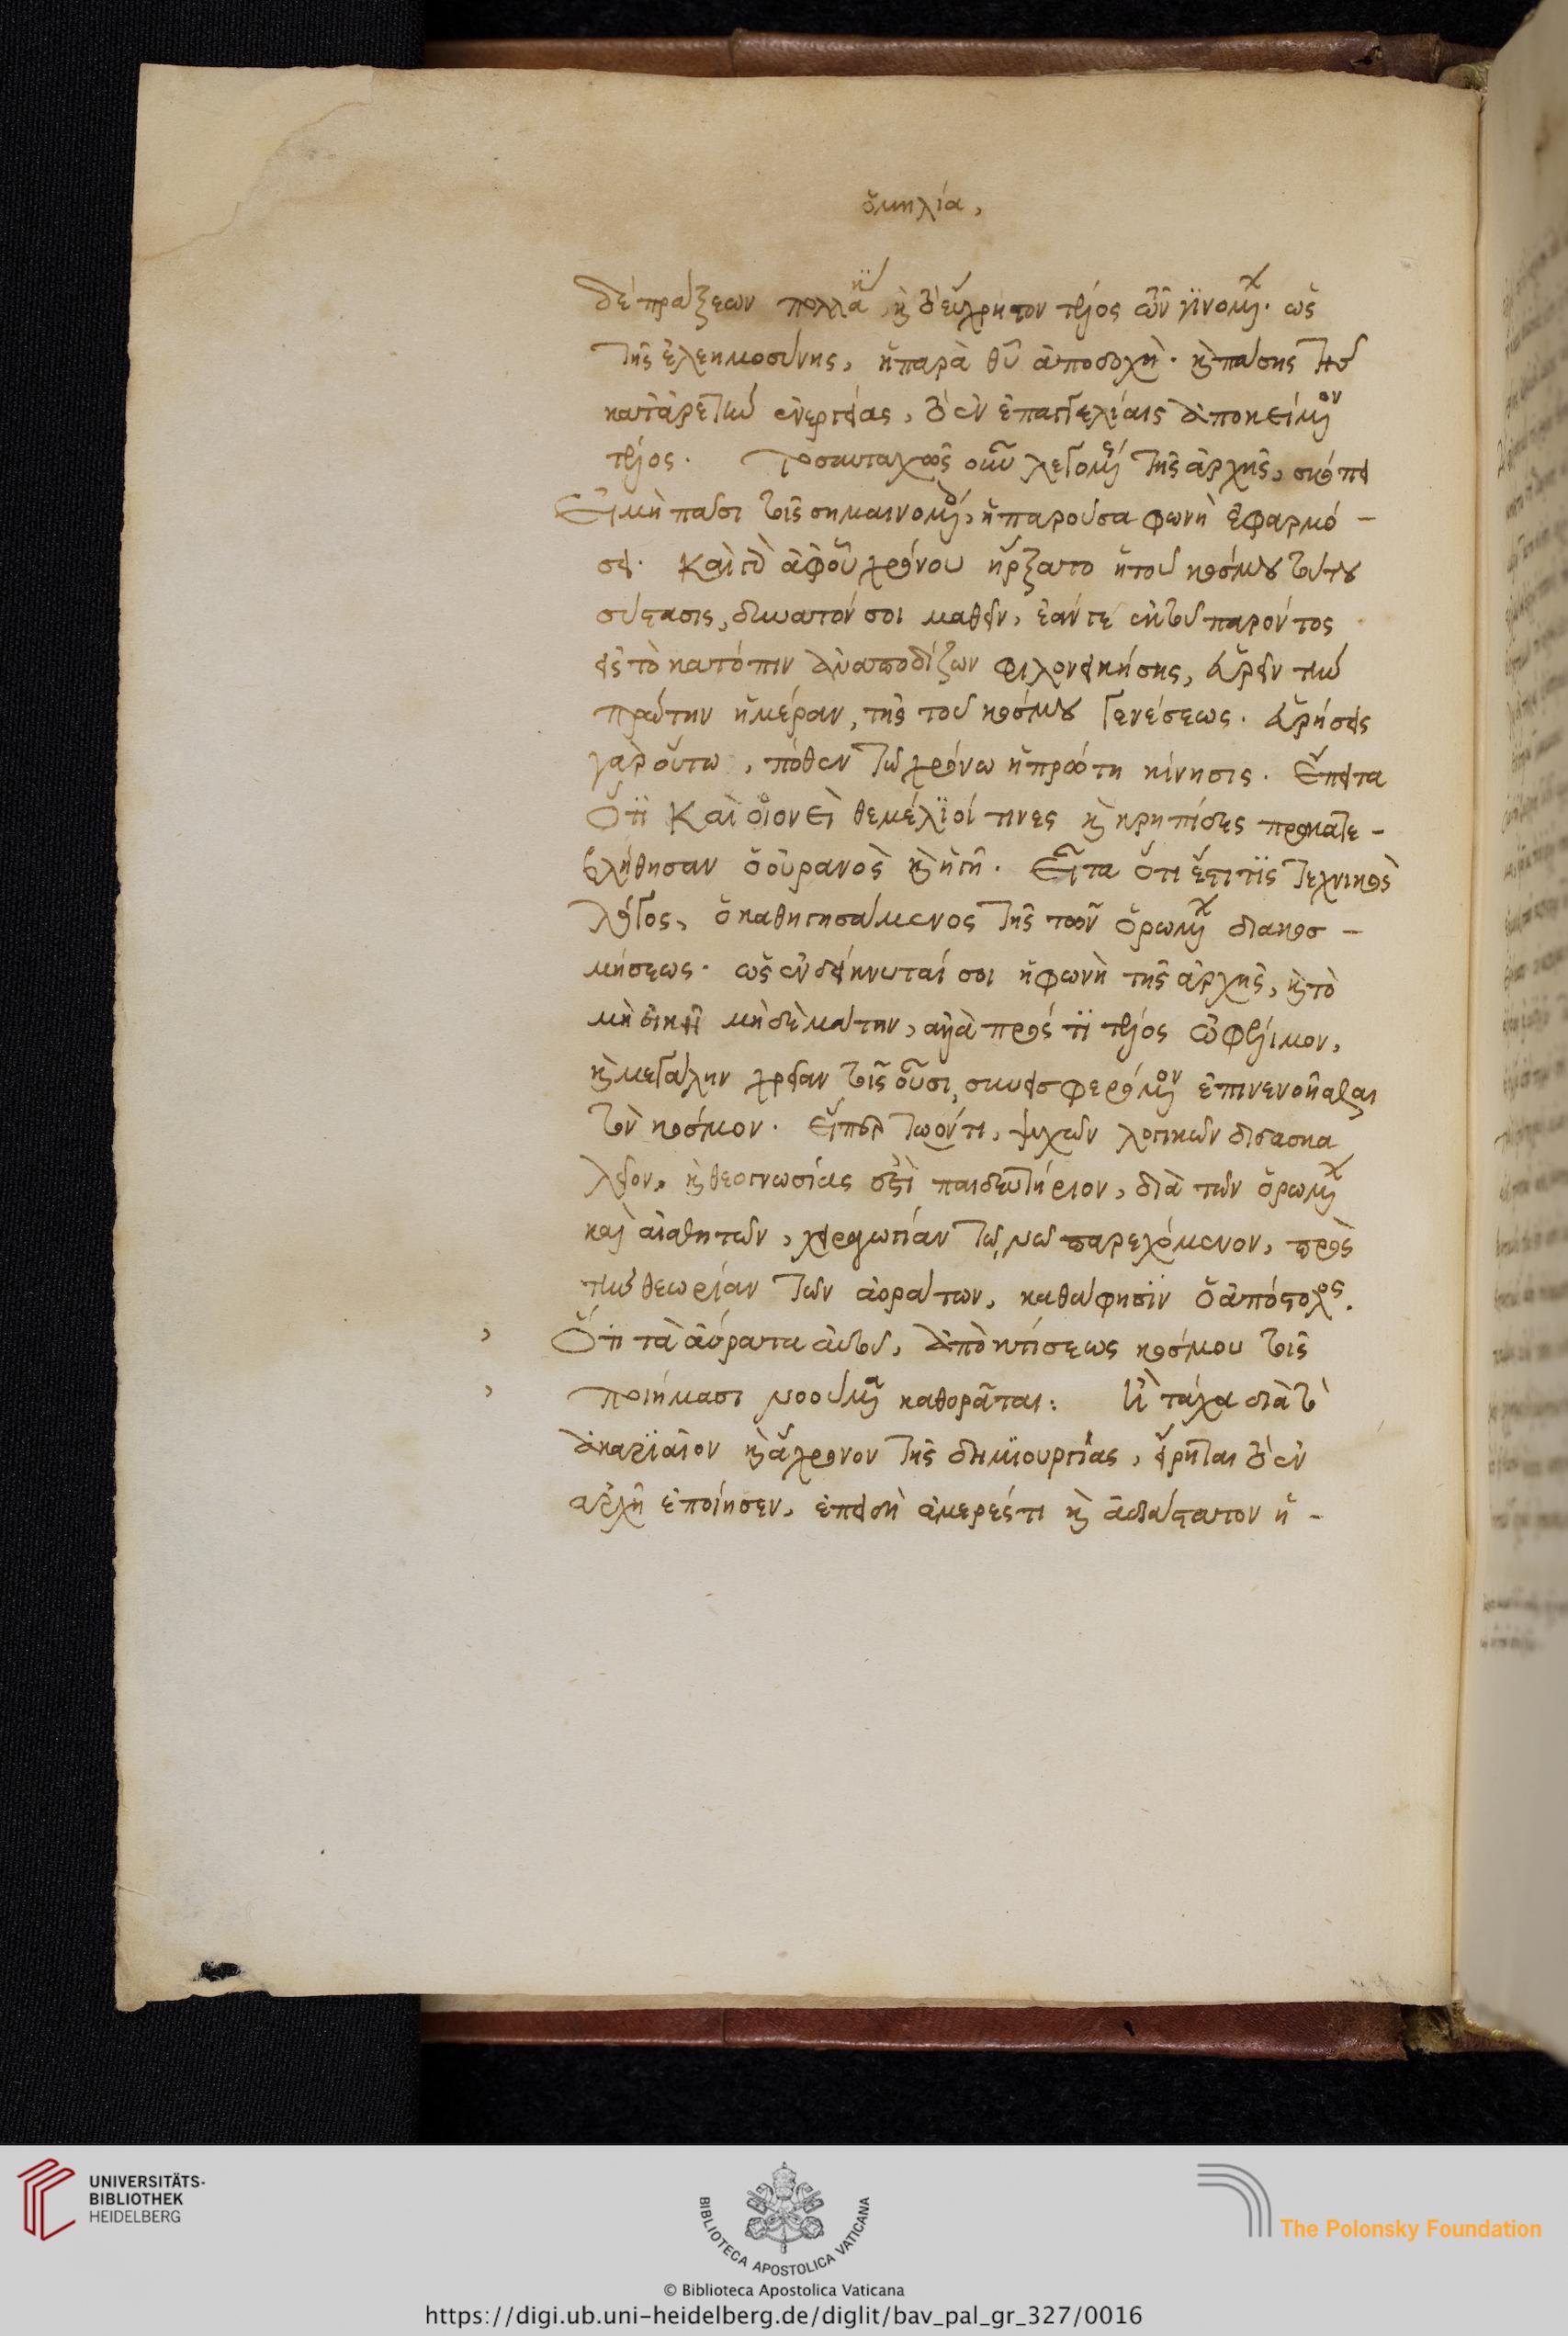 ὁμιλία,
δὲ πράξεων πολλάκις καὶ τὸ εὔχρηστον τέλος τῶν γινομένων· ὡς
τῆς ἐλεημοσύνης, ἡ παρὰ θῦ ἀποδοχὴ· καὶ πάσης τῆς
κατἀρετὴν ἐνεργείας, τὸ ἐν ἐπαγγελίαις ἀποκείμενον
τέλος. Τοσαυταχῶς οὖν λεγομένης τῆς ἀρχῆς, σκόπει
Εἰ μὴ πᾶσι τοῖς σημαινομένοις, ἡ παροῦσα φωνὴ ἐφαρμό-
σει. Καὶ γὰρ ἀφοῦ χρόνου ἤρξατο ἡ τοῦ κόσμου τούτου
σύστασις, δυνατόν σοι μαθεῖν, ἐάν γε ἐκ τοῦ παρόντος
εἰς τὸ κατόπιν ἀναποδίζων φιλονεικήσῃς, εὑρεῖν τὴν
πρώτην ἡμέραν, τῆς τοῦ κόσμου γενέσεως. εὑρήσεις
γὰρ οὕτω, πόθεν τῶ χρόνω ἡ πρώτη κίνησις. Ἔπειτα
Ὅτι καὶ οἱονεὶ θεμέλιοί τινες καὶ κρηπίδες προκατε-
βλήθησαν ὁ οὐρανὸς καὶ ἡ γῆ. Εἶτα ὅτι ἔστι τὶς τεχνικὸς
λόγος, ὁ καθηγησάμενος τῆς τῶν ὁρωμένων διακοσ-
μήσεως· ὡς ἐνδείκνυταί σοι ἡ φωνὴ τῆς ἀρχῆς, καὶ τὸ
μὴ εἰκῆ μὴδὲ μάτην, ἀλλὰ πρός τι τέλος ὠφέλιμον,
καὶ μεγάλην χρείαν τοῖς οὖσι συνεισφερόμενον ἐπινενοῆσθαι
τὸν κόσμον. Εἴπερ τῶ ὄντι, ψυχῶν λογικῶν διδασκα
λεῖον, καὶ θεογνωσίας ἐστὶ παιδευτήριον, διὰ τῶν ὁρωμένων
καὶ αἰσθητῶν, χειραγωγίαν τῶ νῶ παρεχόμενον, πρὸς
τὴν θεωρίαν τῶν ἀοράτων, καθά φησὶν ὁ ἀπόστολος.
Ὅτι τὰ ἀόρατα αὐτοῦ, ἀπὸ κτίσεως κόσμου τοῖς
ποιήμασι νοούμενα καθορᾶται: Ἢ τάχα διὰ τὸ
ἀκαριαῖον καὶ ἄχρονον τῆς δημιουργίας, εἴρηται τὸ ἐν
ἀρχῆ ἐποίησεν, ἐπειδὴ ἀμερές τι καὶ ἀδιάστατον ἡ-
UNIVERSITÄTS-
BIBLIOTHEK
HEIDELBERG
BIBLIOTECA APOSTOLICA VATICANA
The Polonsky Foundation
© Biblioteca Apostolica Vaticana
https://digi.ub.uni-heidelberg.de/diglit/bav_pal_gr_327/0016